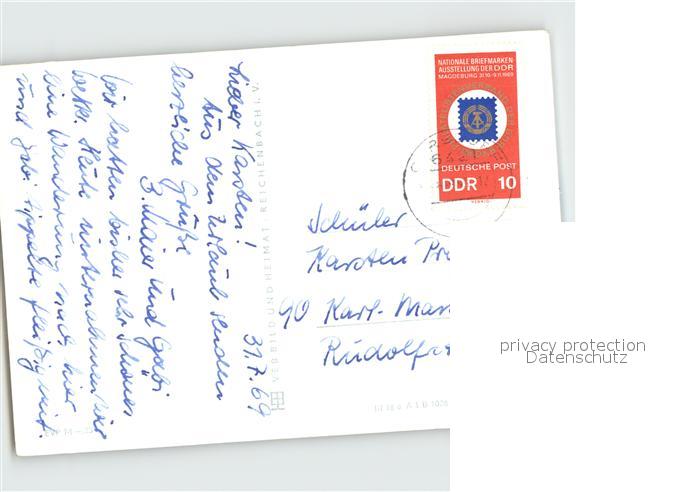 31.7.69
Lieber Karsten!
Aus dem Urlaub senden
herzliche Grüße
B. Maier und Gabi
Wir hatten bisher sehr schönes
Wetter. Heute unternahmen wir
eine Wanderung nach hier
und Gabi tippelte fleißig mit.
VEB BILD UND HEIMAT, REICHENBACH I. V.
NATIONALE BRIEFMARKEN
AUSSTELLUNG DER DDR
MAGDEBURG 31.10.-9.11.1969
DEUTSCHE POST
DDR 10
Schüler
Karsten
90 Karl-Mar
Rudolf
privacy protection
Datenschutz